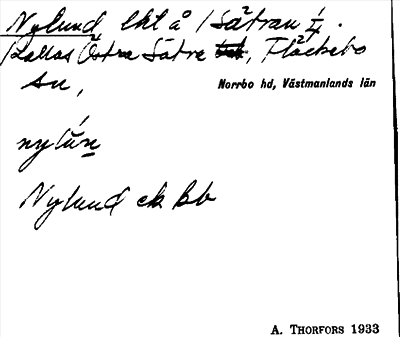 Nylund, lht å /Såtran 1/4.
Kallas Östra Såtre, Fläckebo
sn,
Norrbo hd, Västmanlands län
nylún
Nylund ek bb
A. THORFORS 1933